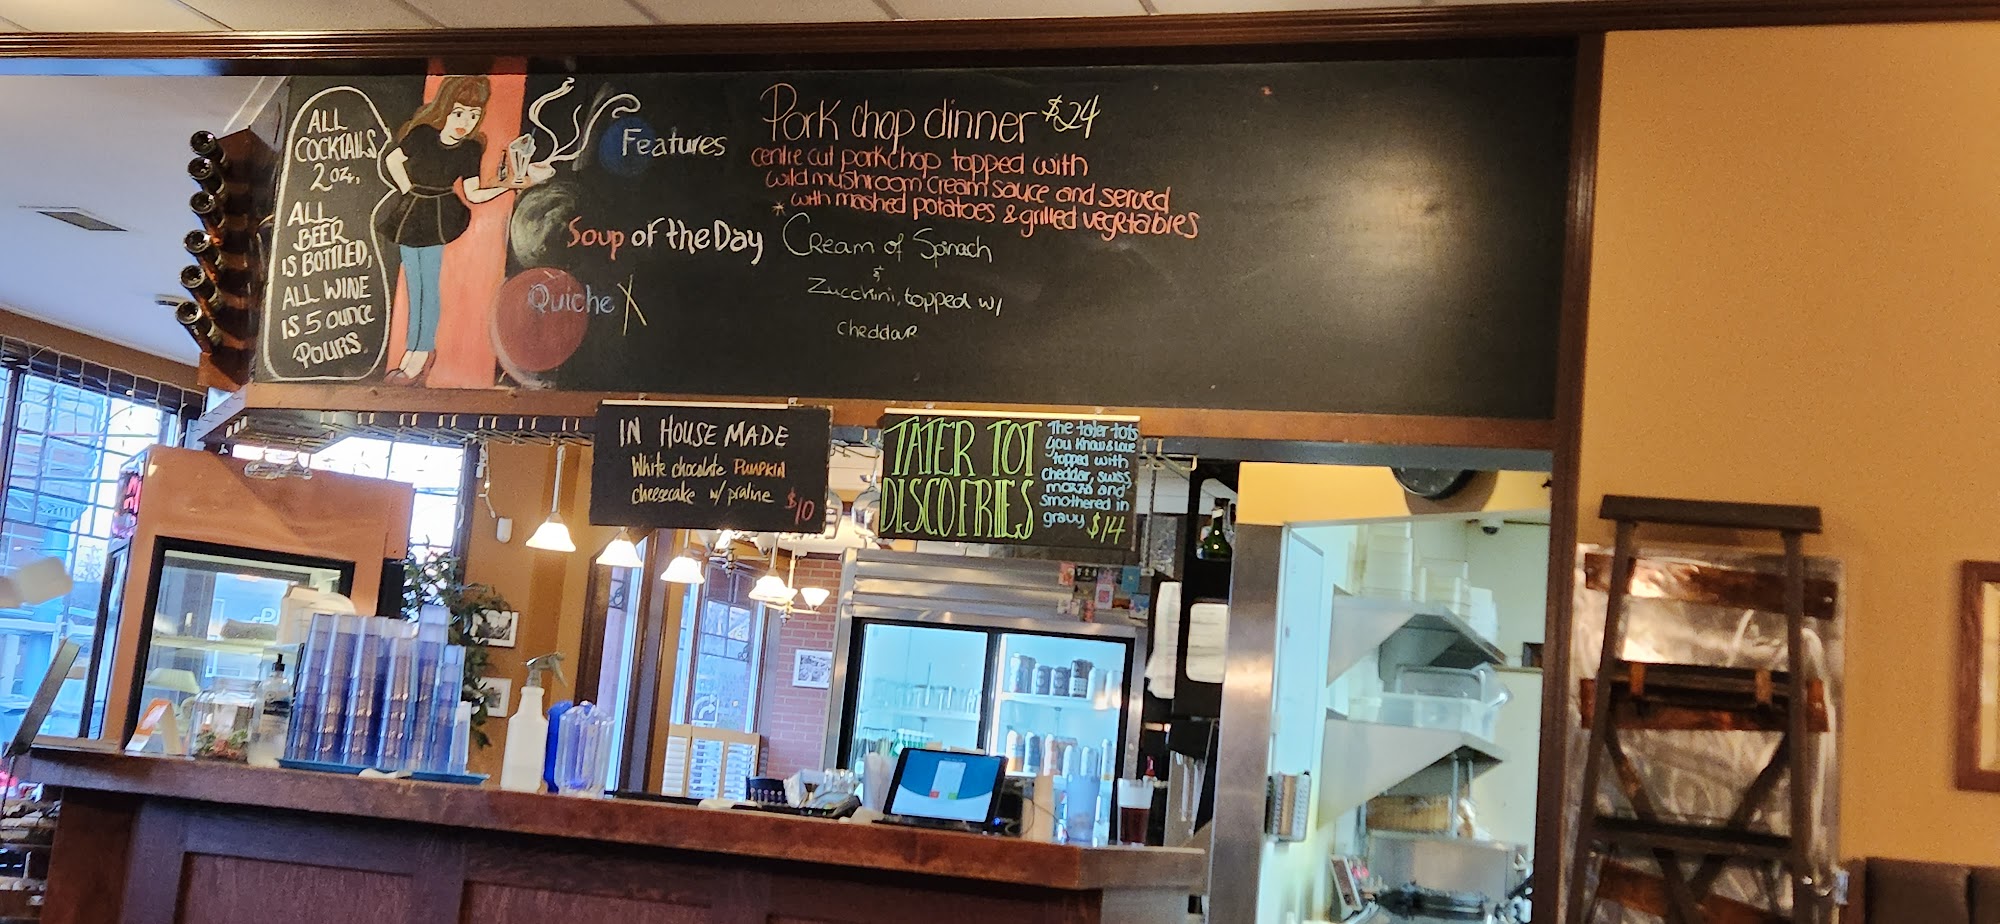 ALL
COCKTAILS
2 oz.
ALL
BEER
IS BOTTLED,
ALL WINE
IS 5 OUNCE
POURS.
Features
Pork chop dinner $24
centre cut porkchop topped with
wild mushroom cream sauce and served
* with mashed potatoes & grilled vegetables
Soup of the Day
Cream of Spinach
&
Zucchini, topped w/
cheddar
Quiche X
IN HOUSE MADE
White chocolate PUMPKIN
cheesecake w/ praline $10
TATER TOT
DISCO FRIES
The tater tots
you know & love
topped with
cheddar, swiss,
mozza and
smothered in
gravy $14